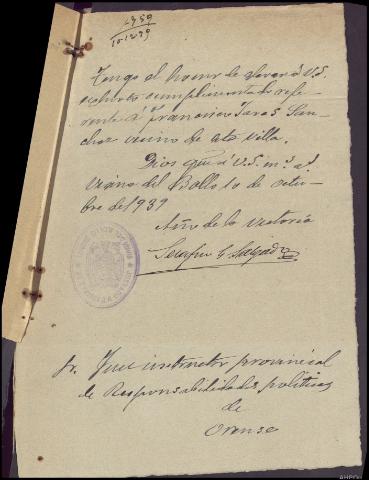 1959
10-12-39
Tengo el honor de elevar á V.S.
exhorto cumplimentado refe-
rente á Francisco San-
chez vecino de esta villa.
Dios gue á V.S. m.s a.s
Viana del Bollo 10 de octu-
bre de 1939
Año de la victoria
Serafin G Salgado
Sr. Juez instructor provincial
de Responsabilidades politicas
de
Orense